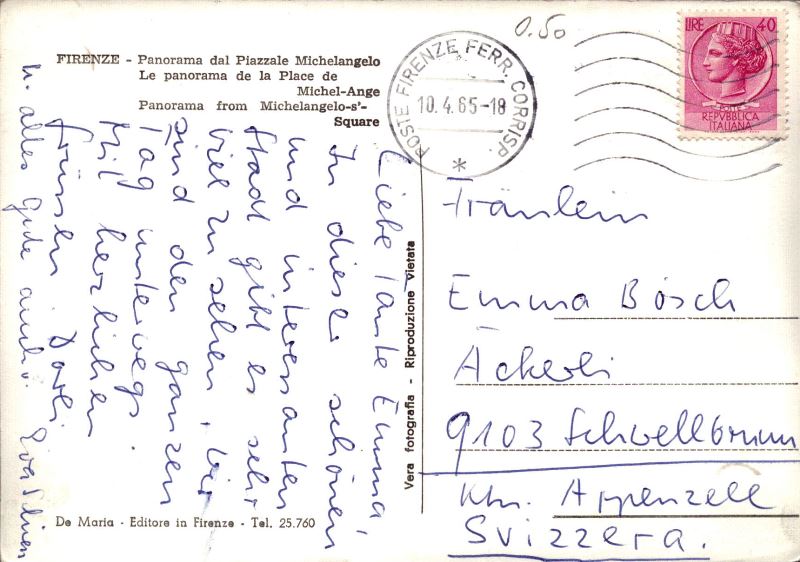 0.50
FIRENZE - Panorama dal Piazzale Michelangelo
Le panorama de la Place de
Michel-Ange
Panorama from Michelangelo-s'-
Square
POSTE FIRENZE FERR. CORRISP.
10.4.65-18
LIRE 40
POSTE
REPVBBLICA
ITALIANA
Liebe Tante Emma,
In dieser schönen
und interessanten
Stadt gibt es sehr
viel zu sehen, wir
sind den ganzen
Tag unterwegs.
Mit herzlichen
Grüssen Dorli
u. alles gute
Vera fotografia - Riproduzione vietata
Fräulein
Emma Bösch
Äckerli
9103 Schwellbrunn
Ktn. Appenzell
Svizzera.
De Maria - Editore in Firenze - Tel. 25.760